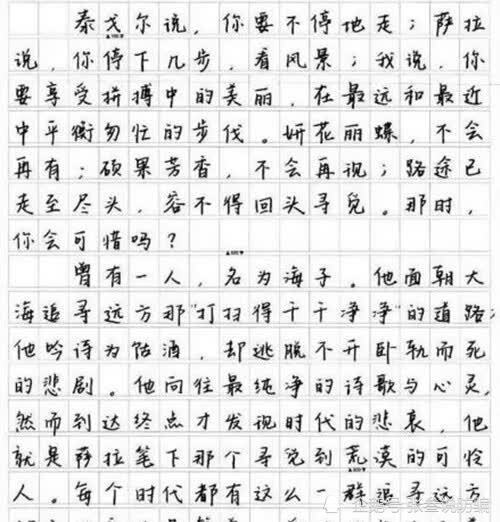 泰戈尔说，你要不停地走；萨拉
说，你停下几步，看风景；我说，你
要享受拼搏中的美丽，在最远和最近
中平衡匆忙的步伐。妍花丽蝶，不会
再有；硕果芳香，不会再现；路途已
走至尽头，容不得回头寻觅。那时，
你会可惜吗？
曾有一人，名为海子。他面朝大
海追寻远方那“打扫得干干净净”的道路；
他吟诗为酤酒，却逃脱不开卧轨而死
的悲剧。他向往最纯净的诗歌与心灵，
然而到达终点才发现时代的悲哀，他
就是萨拉笔下那个寻觅到荒漠的可怜
人。每个时代都有这么一群追寻远方